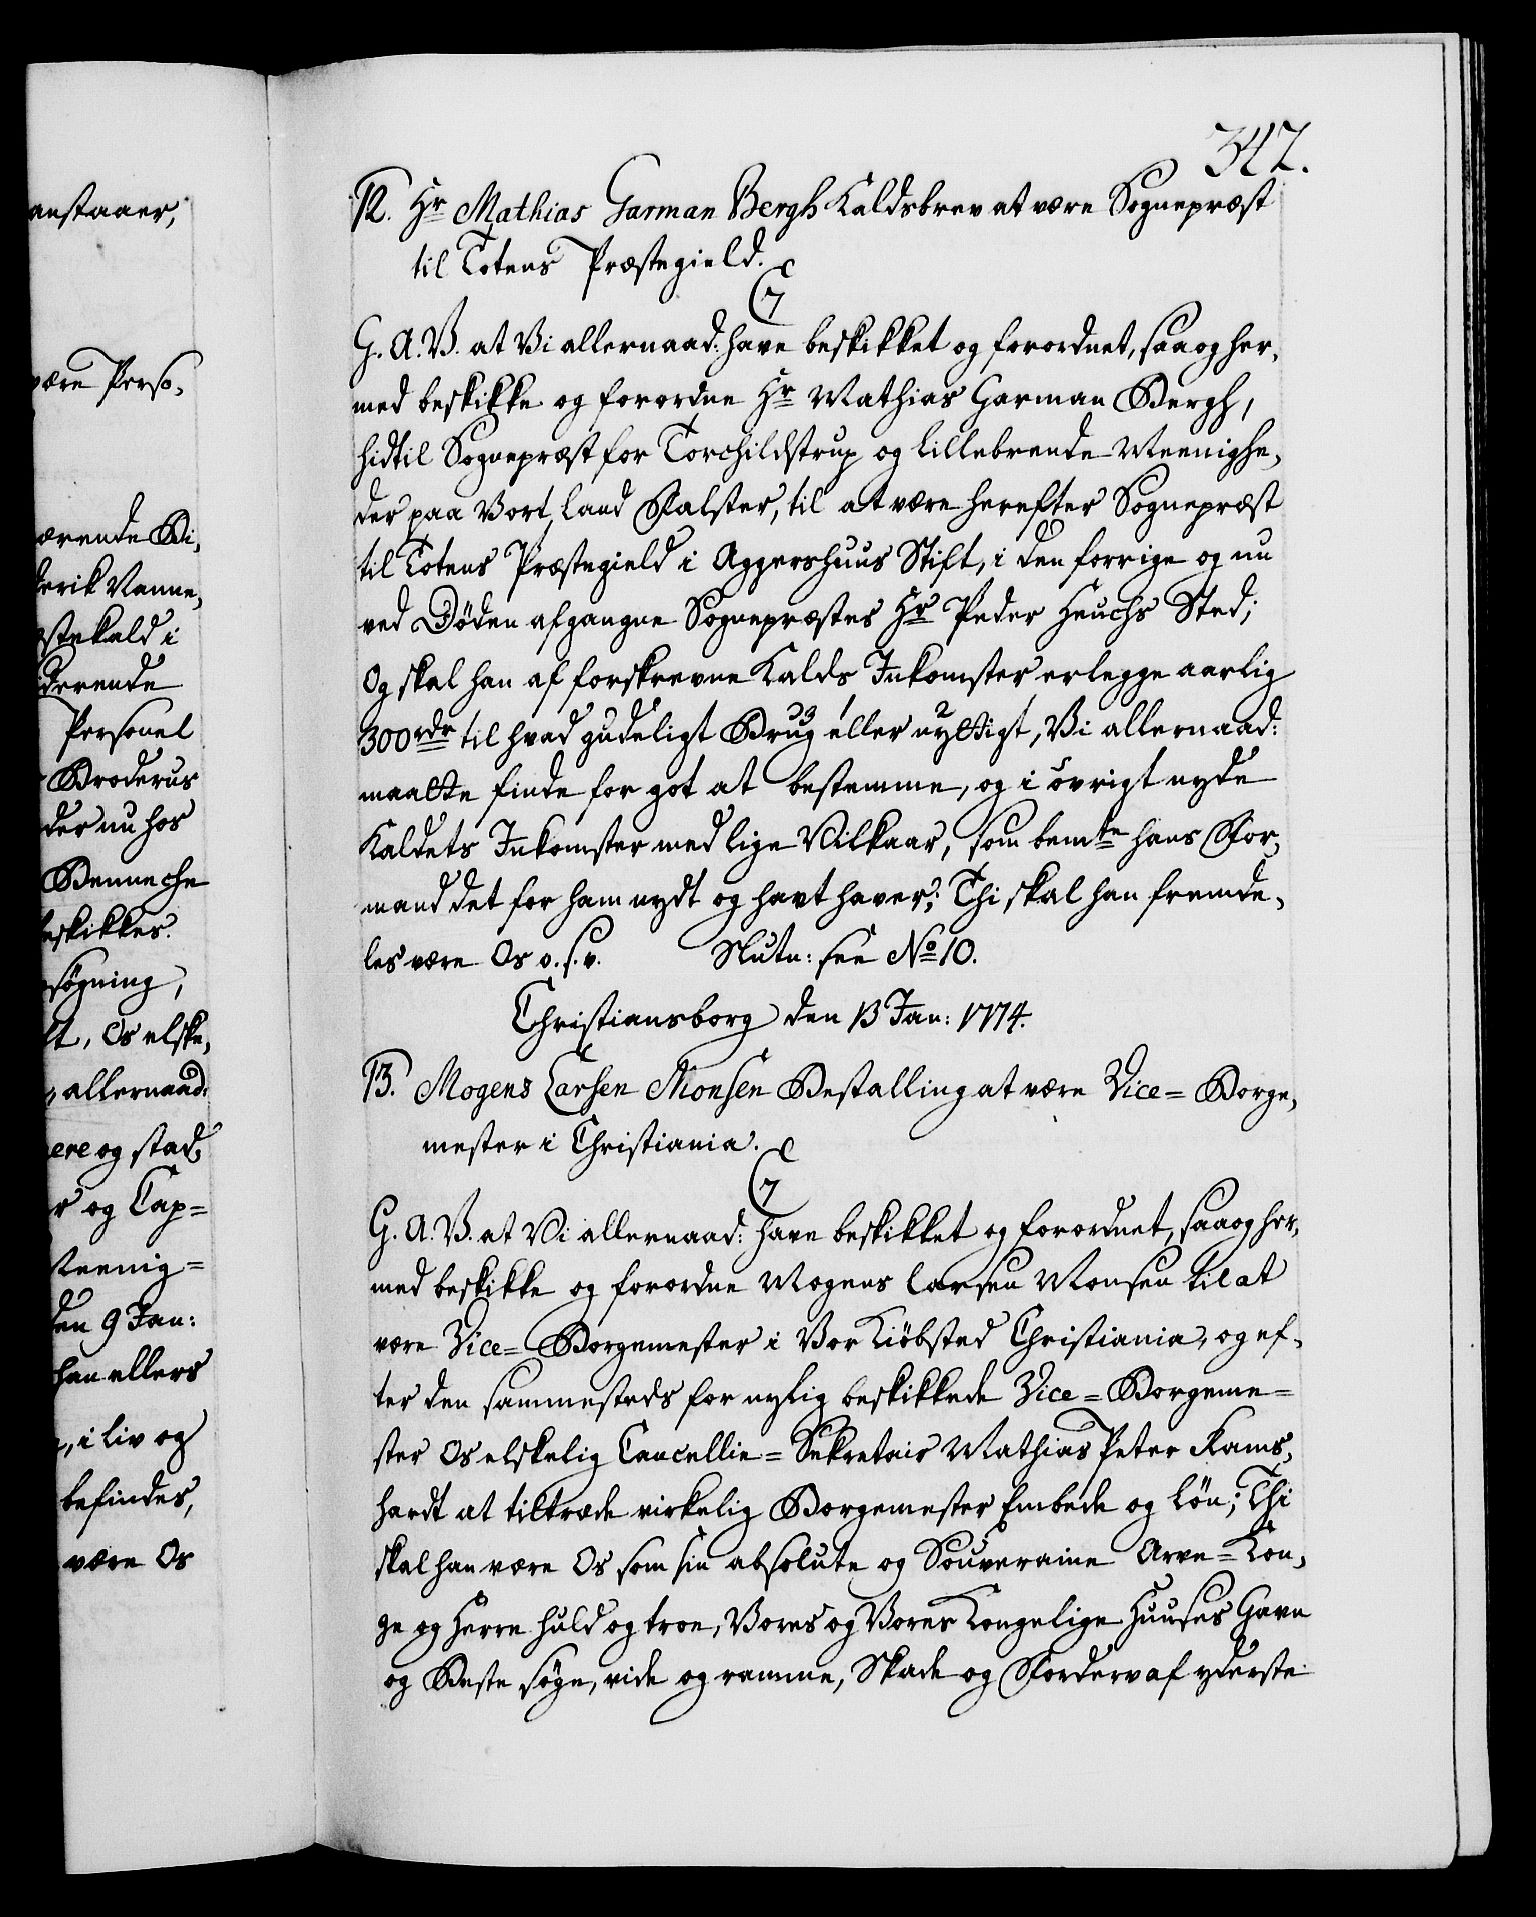 anstaaer,
være Perso-
ærende Bi-
derik Nanne-
stekald i
derende
Personel
Broderus
der nu hos
Benneche
eskikkes.
søgning,
Os elske-
allernaad:
ere og stad-
og Cap=
Meenig=
den 9 Jan:
han ellers
i liv og
befindes,
være Os
347.
12. Hr Mathias Garman Bergh Kaldsbrev at være Sognepræst
til Totens Præstegield.
C7
G. A. V. at Vi allernaad: have beskikket og forordnet, saa og her-
med beskikke og forordne Hr Mathias Garman Bergh,
hidtil Sognepræst for Torchildstrup og Lillebrende Meenighe-
der paa Vort Land Falster, til at være herefter Sognepræst
til Totens Præstegield i Aggershuus Stift, i den forrige og nu
ved Døden afgangne Sognepræstes Hr Peder Heuchs Sted;
Og skal han af forskrevne Kalds Inkomster erlegge aarlig
300rdr til hvad gudeligt Brug eller nyttigt, Vi allernaad:
maatte finde for got at bestemme, og i øvrigt nyde
Kaldets Inkomster med lige Vilkaar, som bemte hans For-
mand det for ham nydt og havt haver; Thi skal han fremde-
les være Os o. s. v. Slutn: see No 10.
Christiansborg den 13 Jan: 1774.
13. Mogens Larsen Monsen Bestalling at være Vice= Borge-
mester i Christiania.
C7
G. A. V. at Vi allernaad: have beskikket og forordnet, saa og her-
med beskikke og forordne Mogens Larsen Monsen til at
være Vice= Borgemester i Vor Kiøbsted Christiania, og ef-
ter den sammesteds for nylig beskikkede Vice= Borgeme=
ster Os elskelig Cancellie= Sekretair Mathias Peter Rams-
hardt at tiltræde virkelig Borgemester Embede og Løn; Thi
skal han være Os som sin absolute og Souveraine Arve= Kon-
ge og Herre huld og troe, Vores og Vores Kongelige Huuses Gavn
og Beste søge, vide og ramme, Skade og Fordervaf yderste